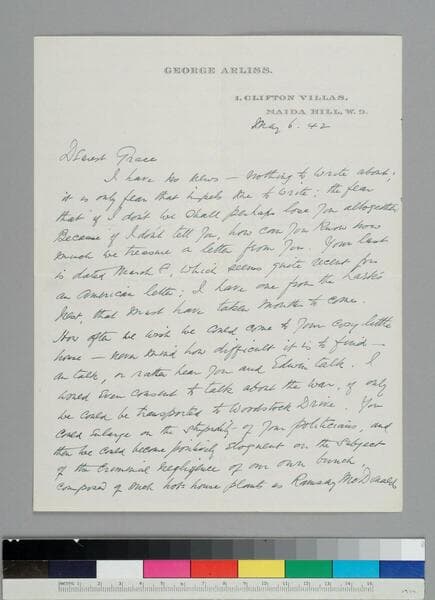 GEORGE ARLISS.
1, CLIFTON VILLAS,
MAIDA HILL, W. 9.
May 6. 42
Dearest Grace
I have no news — nothing to write about;
it is only fear that impels me to write: the fear
that if I don't we shall perhaps lose you altogether
Because if I don't tell you, how can you know how
much we treasure a letter from you. Your last
is dated March 8, which seems quite recent for
an American letter; I have one from the Lark's
Nest, that must have taken months to come.
How often we wish we could come to your cosy little
home — never mind how difficult it is to find —
an talk, or rather hear you and Edwin talk. I
would even consent to talk about the war, if only
we could be transported to Woodstock Drive. You
could enlarge on the stupidity of your politicians, and
then we could become positively eloquent on the subject
of the criminal negligence of our own bunch,
composed of such hot-house plants as Ramsay McDonald